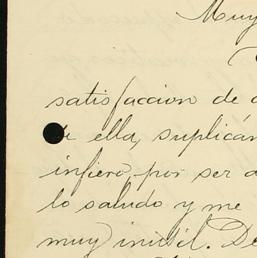 Muy
satisfaccion de
ella, suplicán
infiero, por ser a
lo saludo y me
muy inutil. De